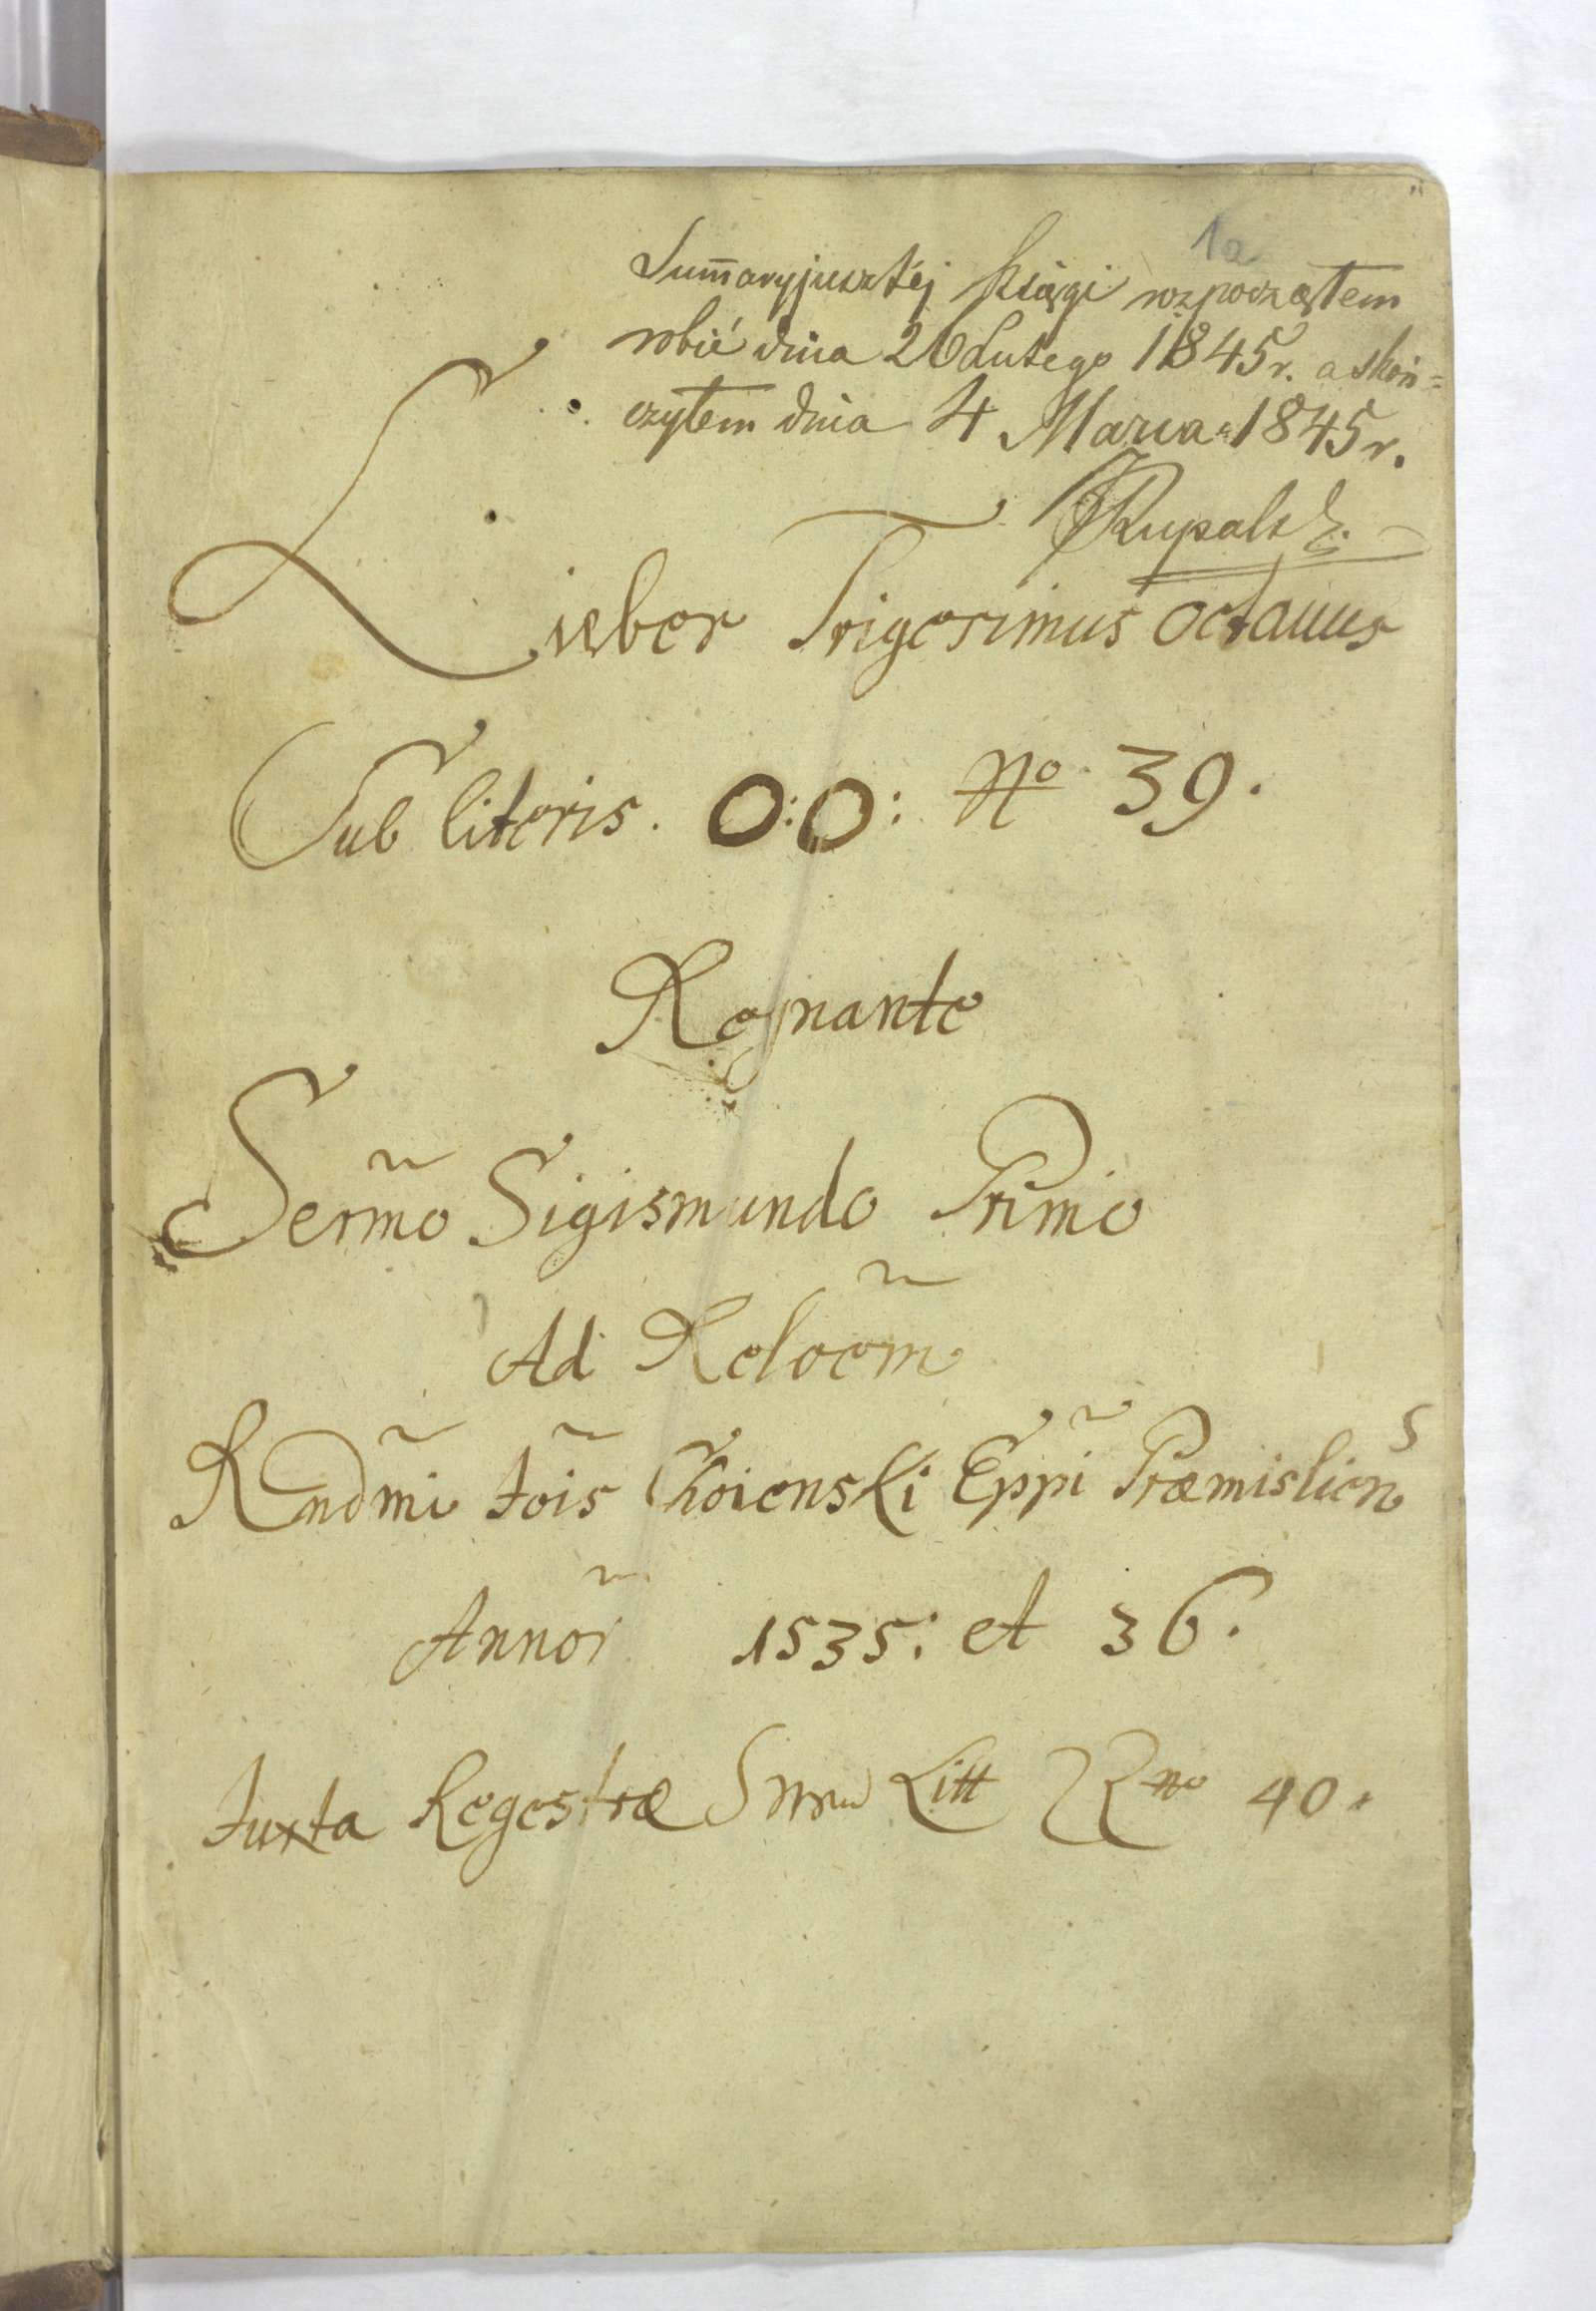 1a
Sum̄aryjusz téj Księgi rozpocząłem
robić dnia 26 Lutego 1845 r. a skoń=
czyłem dnia 4 Marca 1845 r.
Lieber Trigesimus Octauus
Sub literis. O:O: No 39.
Regnante
Serm̃o Sigismundo Primo
Ad Reloẽm
Rndm̃i Joĩs Choienski Epp̃i Præmislien̄s
Annor̃ 1535: et 36.
Juxta Regestræ Litt No 40.